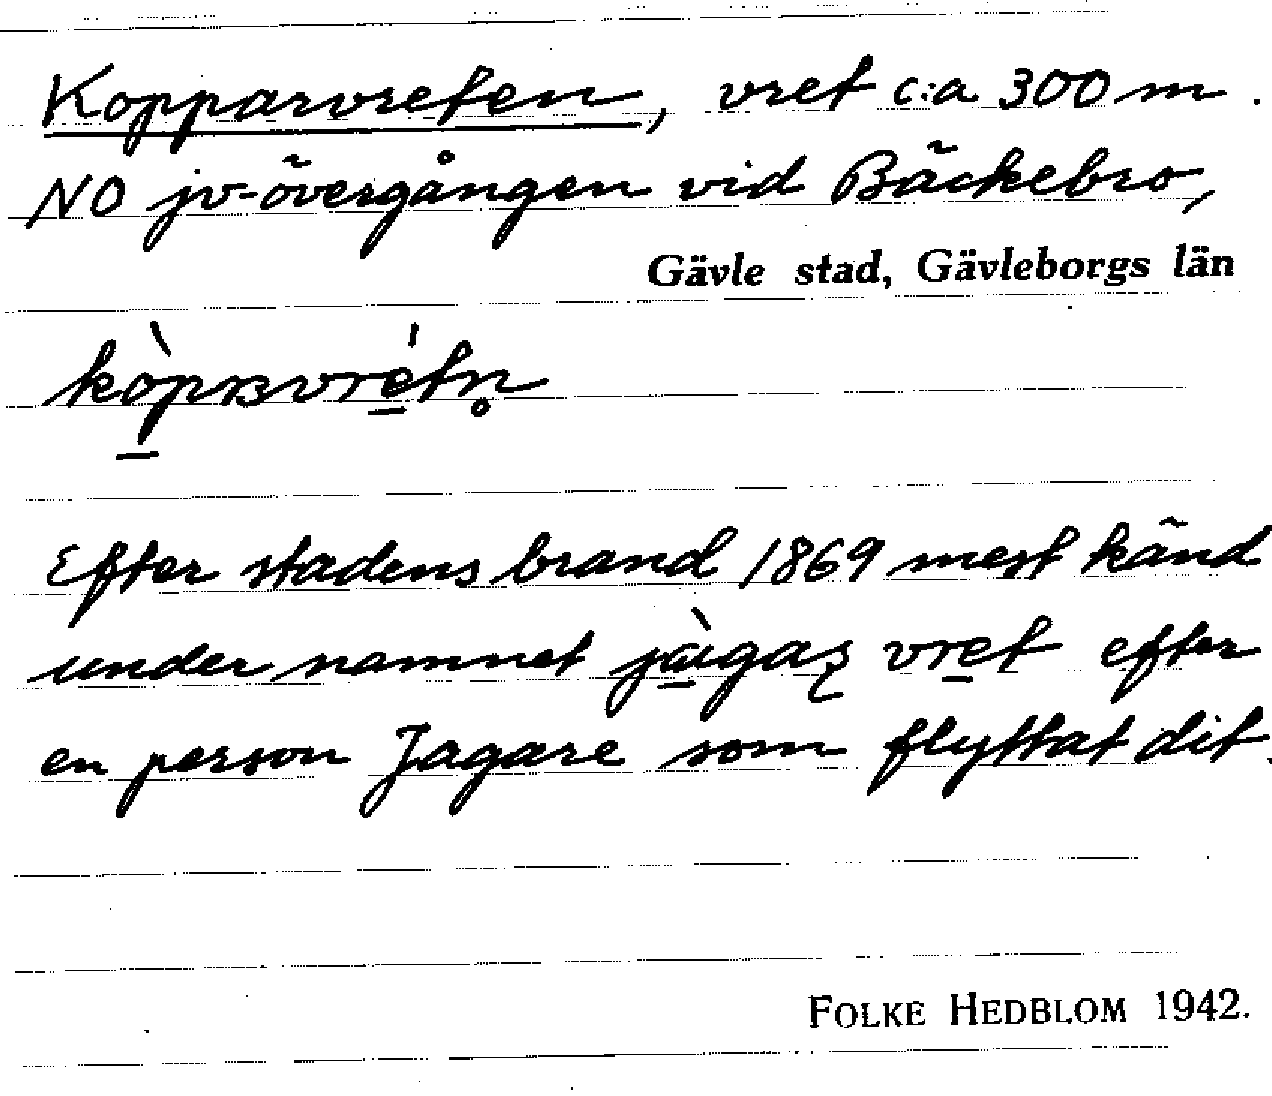 Kopparvreten, vret c:a 300 m.
NO jv-övergången vid Bäckebro,
Gävle stad, Gävleborgs län
kòpʀvrétn̥
Efter stadens brand 1869 mest känd
under namnet jɑ̀gaʂ vret efter
en person Jagare som flyttat dit.
FOLKE HEDBLOM 1942.